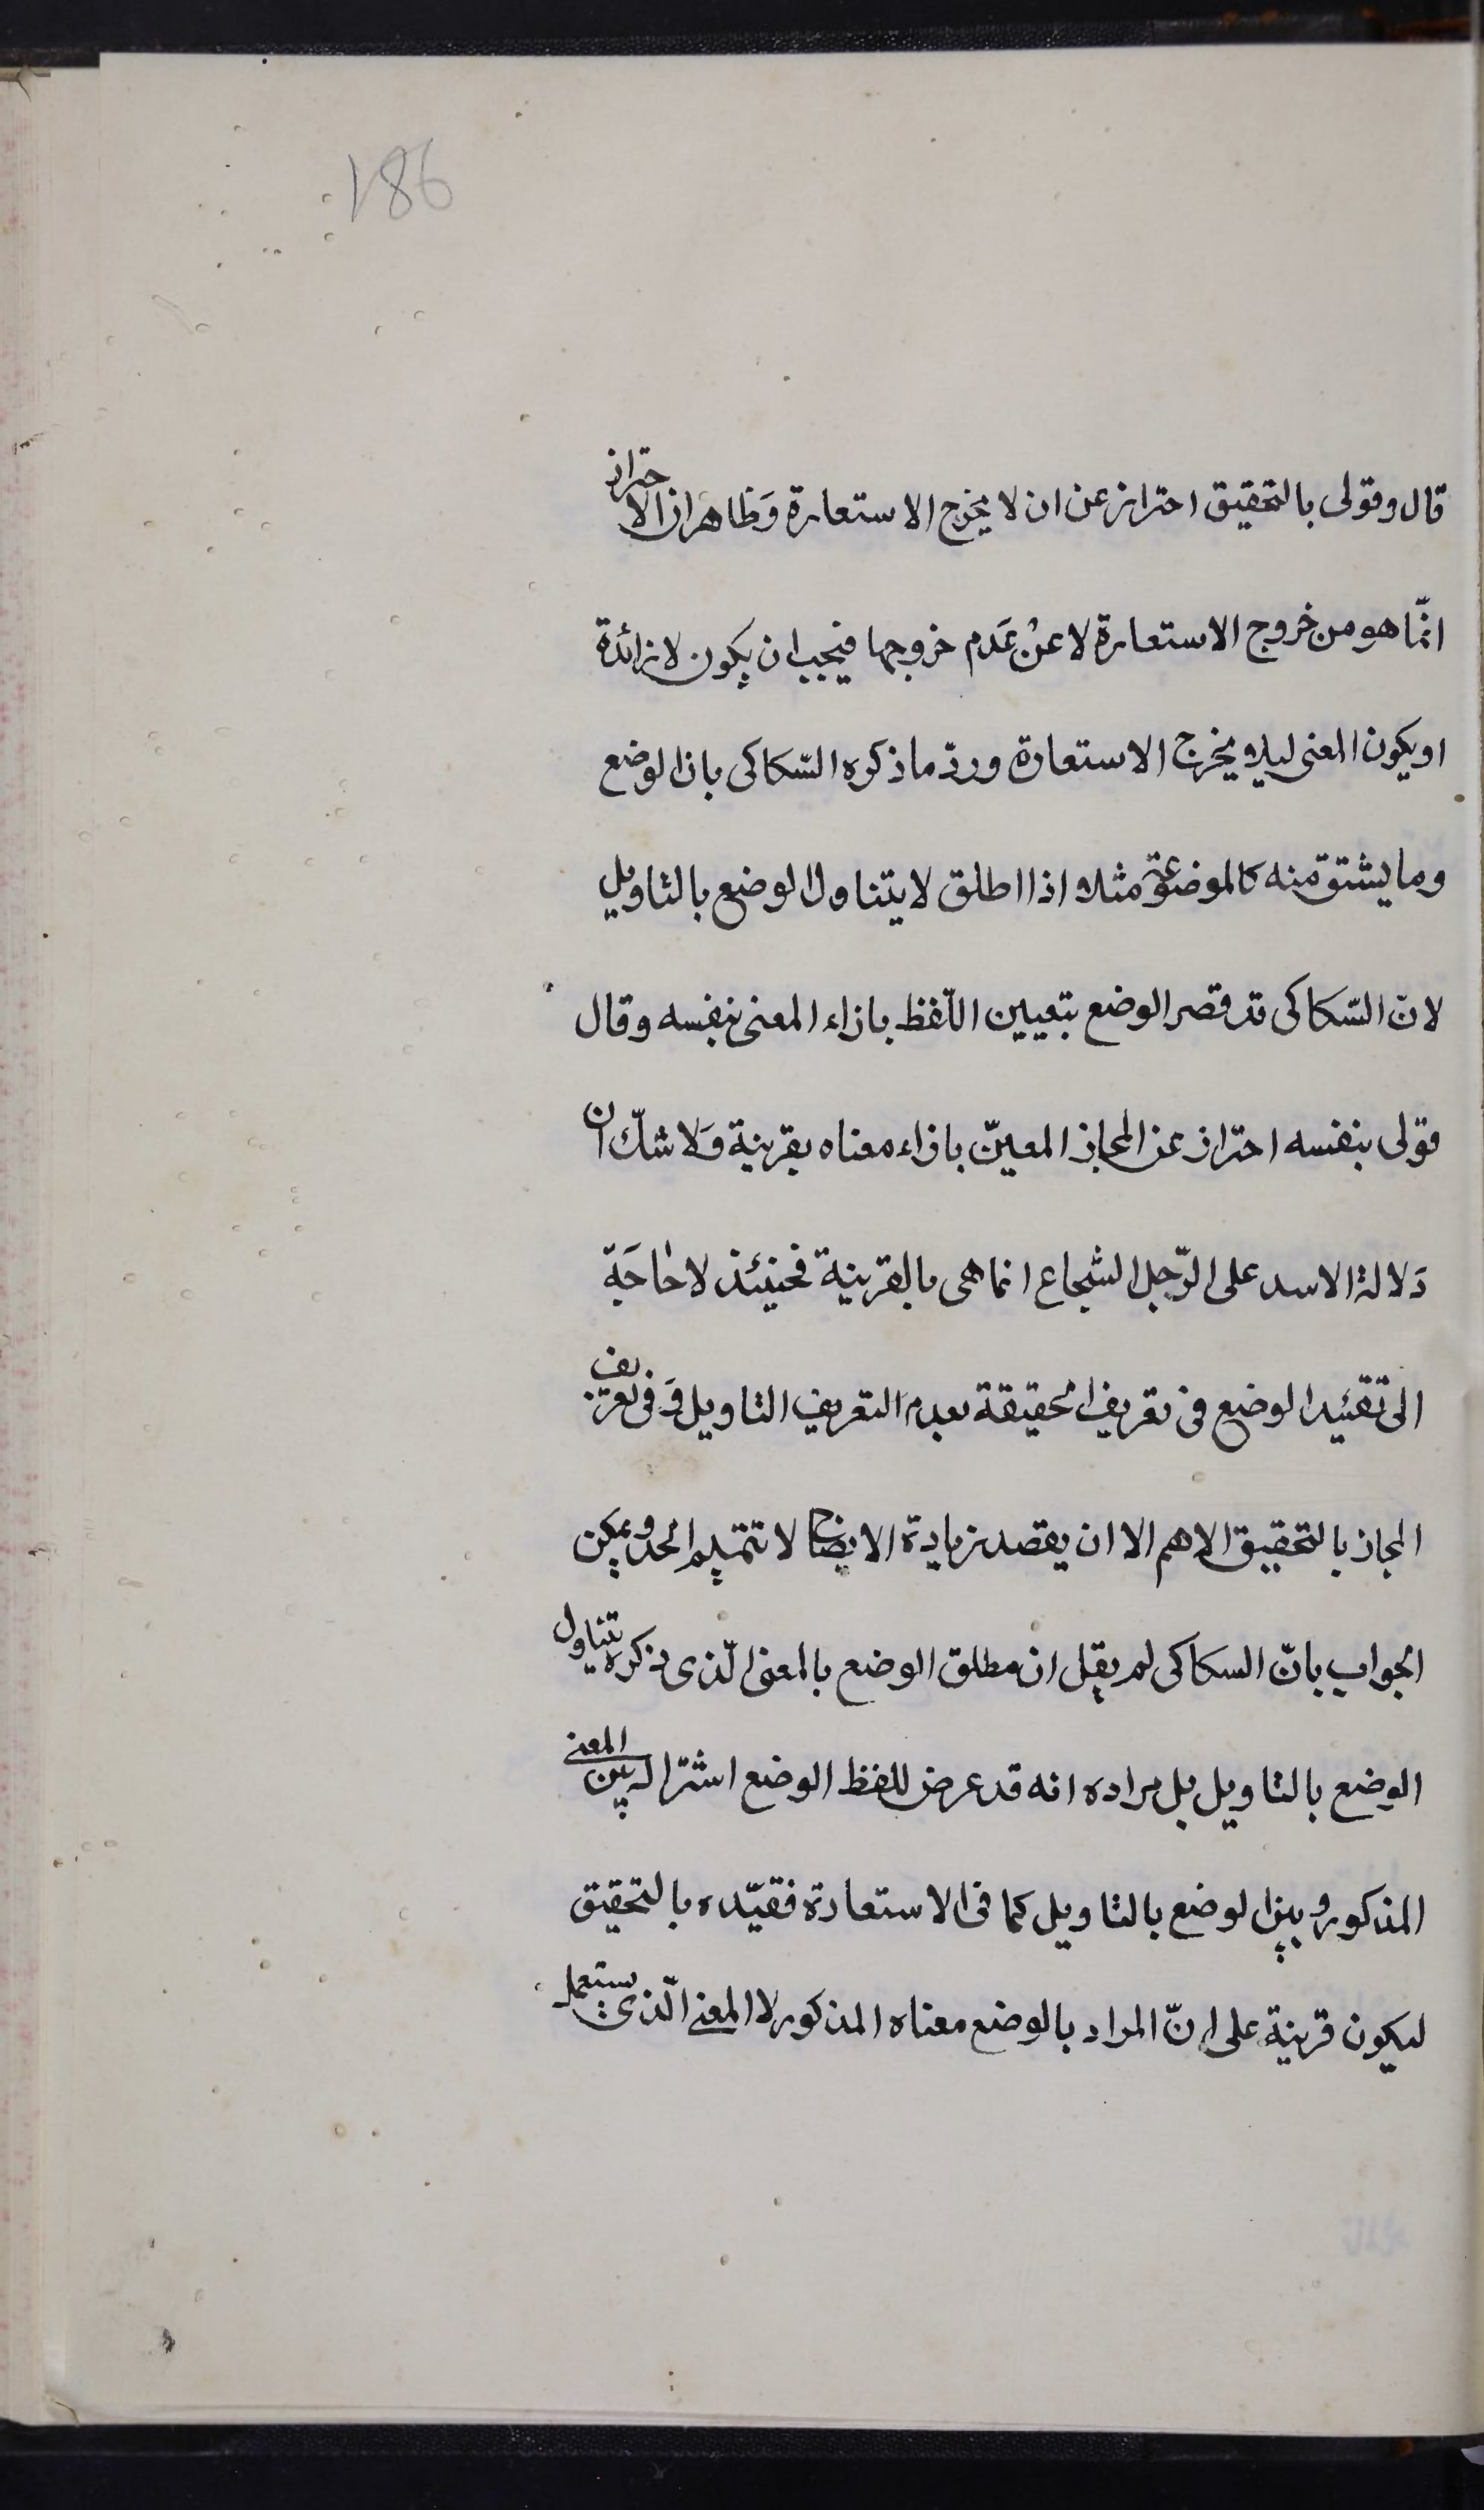 186
قال وقولی بالتحقیق احتراز عن ان لا یخرج الاستعارة وَظاهر ان الاحتراز
انّما هو من خروج الاستعارة لا عنْ عَدم خروجها فیجب ان یکون لا زائدة
او یکون المعنی لیلا یخرج الاستعارة وردّ ما ذکره السّکاکی بان الوضع
وما یشتق منه کالموضوعة مثلا اذا اطلق لا یتناول الوضع بالتاویل
لانّ السّکاکی قد قصر الوضع بتعیین اللّفظ بازاء المعنی بنفسه وقال
قولی بنفسه احتراز عن المجاز المعیّن بازاء معناه بقرینة وَلا شکّ ان
دَلالة الاسد علی الرّجل الشجاع انما هی بالقرینة فحینئذ لا حٰاجَة
الی تقئید الوضع فی تعریف الحقیقة بعدم التعریف التاویل وَ فی تعریف
المجاز بالتحقیق اللاهم الا ان یقصد زیادة الایضاح لا تتمیم الحد ویمکن
الجواب بانّ السکاکی لم یقل ان مطلق الوضع بالمعنی الّذی ذکره یتناول
الوضع بالتاویل بل مراده انه قد عرض للفظ الوضع اشتراک بین المعنی
المذکور وبین الوضع بالتاویل کما فی الاستعارة فقیّده بالتحقیق
لیکون قرینة علی انّ المراد بالوضع معناه المذکور لا المعنی الّذی یستعمل